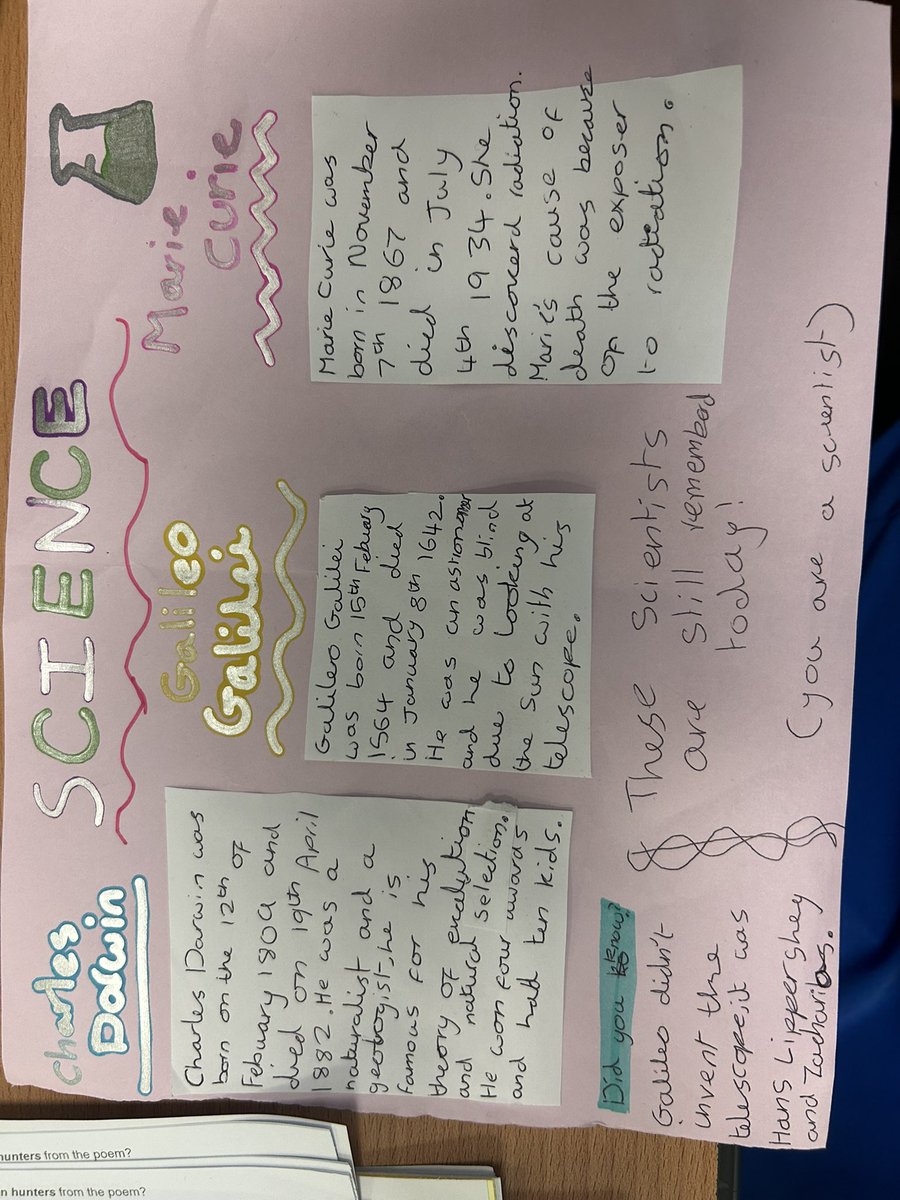 SCIENCE
Charles
Darwin
Charles Darwin was
born on the 12th of
Febuary 1809 and
died on 19th April
1882. He was a
naturalist and a
geologist, he is
famous for his
theory of evolution
and natural selection.
He won four awards
and had ten kids.
Galileo
Galilei
Galilero Galilei
was born 15th Febuary
1564 and died
in January 8th 1642.
He was an astronomer
and he was blind
due to looking at
the Sun with his
telescope.
Marie
Curie
Marie Curie was
born in November
7th 1867 and
died in July
4th 1934. She
discoverd radiation.
Marie's cause of
death was because
of the exposer
to radeation.
Did you know?
Galileo didn't
invent the
telescope, it was
Hans Lippershey
and Zacharias.
These Scientists
are still rememberd
today!
(you are a scientist)
hunters from the poem?
n hunters from the poem?